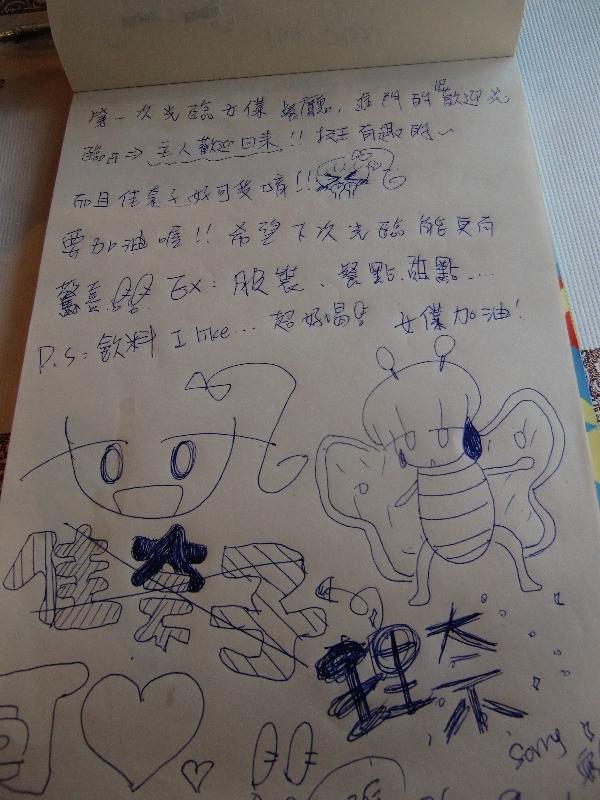 第一次光臨女僕餐廳,進門的"歡迎光
臨" ⇒ 主人歡迎回来!! 挺有趣的~
而且佳奈子好可愛唷!!
要加油喔!! 希望下次光臨能更有
驚喜 EX: 服裝、餐點、甜點....
P.S: 飲料 I like... 超好喝 女僕加油!
佳奈子
理奈
可
!!
sorry